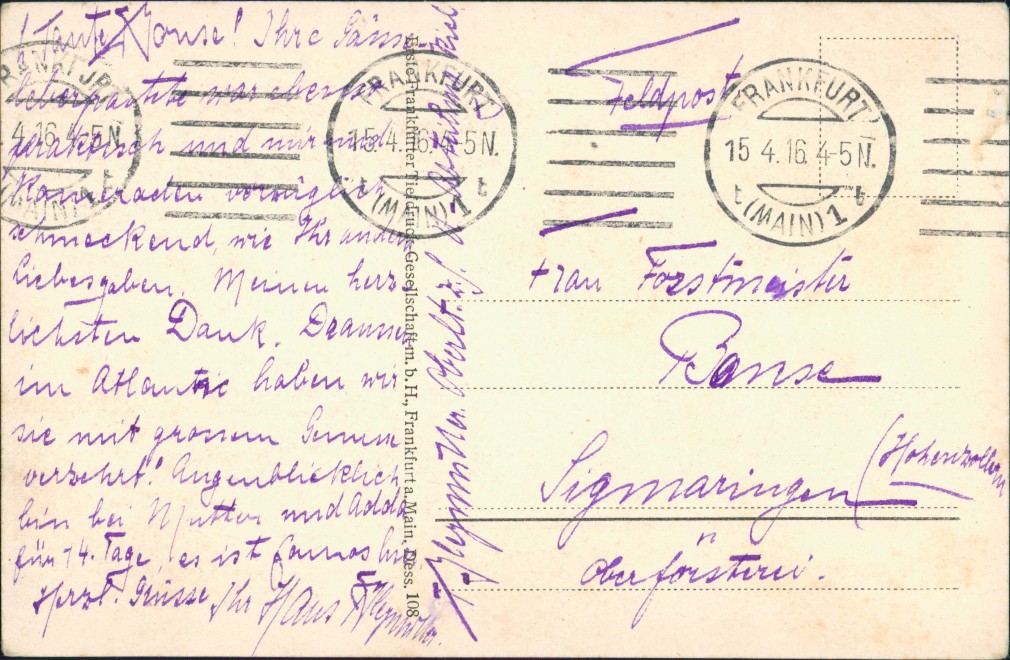 ! Tante Bonse! Ihre Gänse-
leberpastete war ebenso
praktisch und
Kameraden vorzüglich
schmeckend, wie Ihr andern
Liebesgaben. Meinen herz-
lichsten Dank. Draussen
im Atlantic haben wir
sie mit grossem Genusse
verzehrt! Augenblicklich
bin bei Mutter und
für 14. Tage, es ist famos hier
Herzl. Grüsse, Ihr Hans
Oberlt. z. S.
Erste Frankfurter Tiefdruck-Gesellschaft m. b. H., Frankfurt a. Main, Dess. 108
FRANKFURT
(MAIN) 1
4.16. 4-5 N.
t
FRANKFURT
(MAIN) 1
15.4.16. 4-5 N.
t t
FRANKFURT
(MAIN) 1
15 4.16. 4-5 N.
t t
Feldpost
Frau Forstmeister
Bonse
Sigmaringen
(Hohenzollern
Oberförsterei.